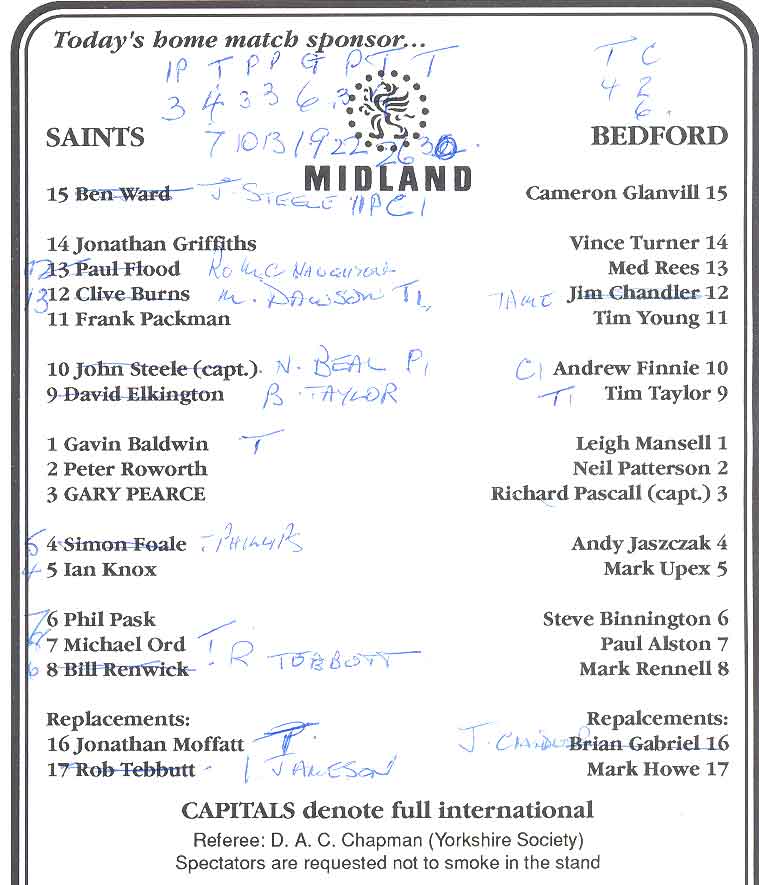 Today's home match sponsor...
1P T P P G P T T
3 4 3 3 6 3
7 10 13 19 22 26 30
T C
4 2
6
SAINTS BEDFORD
MIDLAND
15 Ben Ward J. STEELE 11PC1 Cameron Glanvill 15
14 Jonathan Griffiths Vince Turner 14
13 Paul Flood Med Rees 13
13 12 Clive Burns M. DAWSON T1, TAME Jim Chandler 12
11 Frank Packman Tim Young 11
10 John Steele (capt.) N. BEAL P1 C1 Andrew Finnie 10
9 David Elkington B. TAYLOR T1 Tim Taylor 9
1 Gavin Baldwin T Leigh Mansell 1
2 Peter Roworth Neil Patterson 2
3 GARY PEARCE Richard Pascall (capt.) 3
5 4 Simon Foale PHILLIPS Andy Jaszczak 4
4 5 Ian Knox Mark Upex 5
6 Phil Pask Steve Binnington 6
7 Michael Ord Paul Alston 7
6 8 Bill Renwick R TEBBUTT Mark Rennell 8
Replacements: Repalcements:
16 Jonathan Moffatt J. CHANDLER Brian Gabriel 16
17 Rob Tebbutt JAMESON Mark Howe 17
CAPITALS denote full international
Referee: D. A. C. Chapman (Yorkshire Society)
Spectators are requested not to smoke in the stand